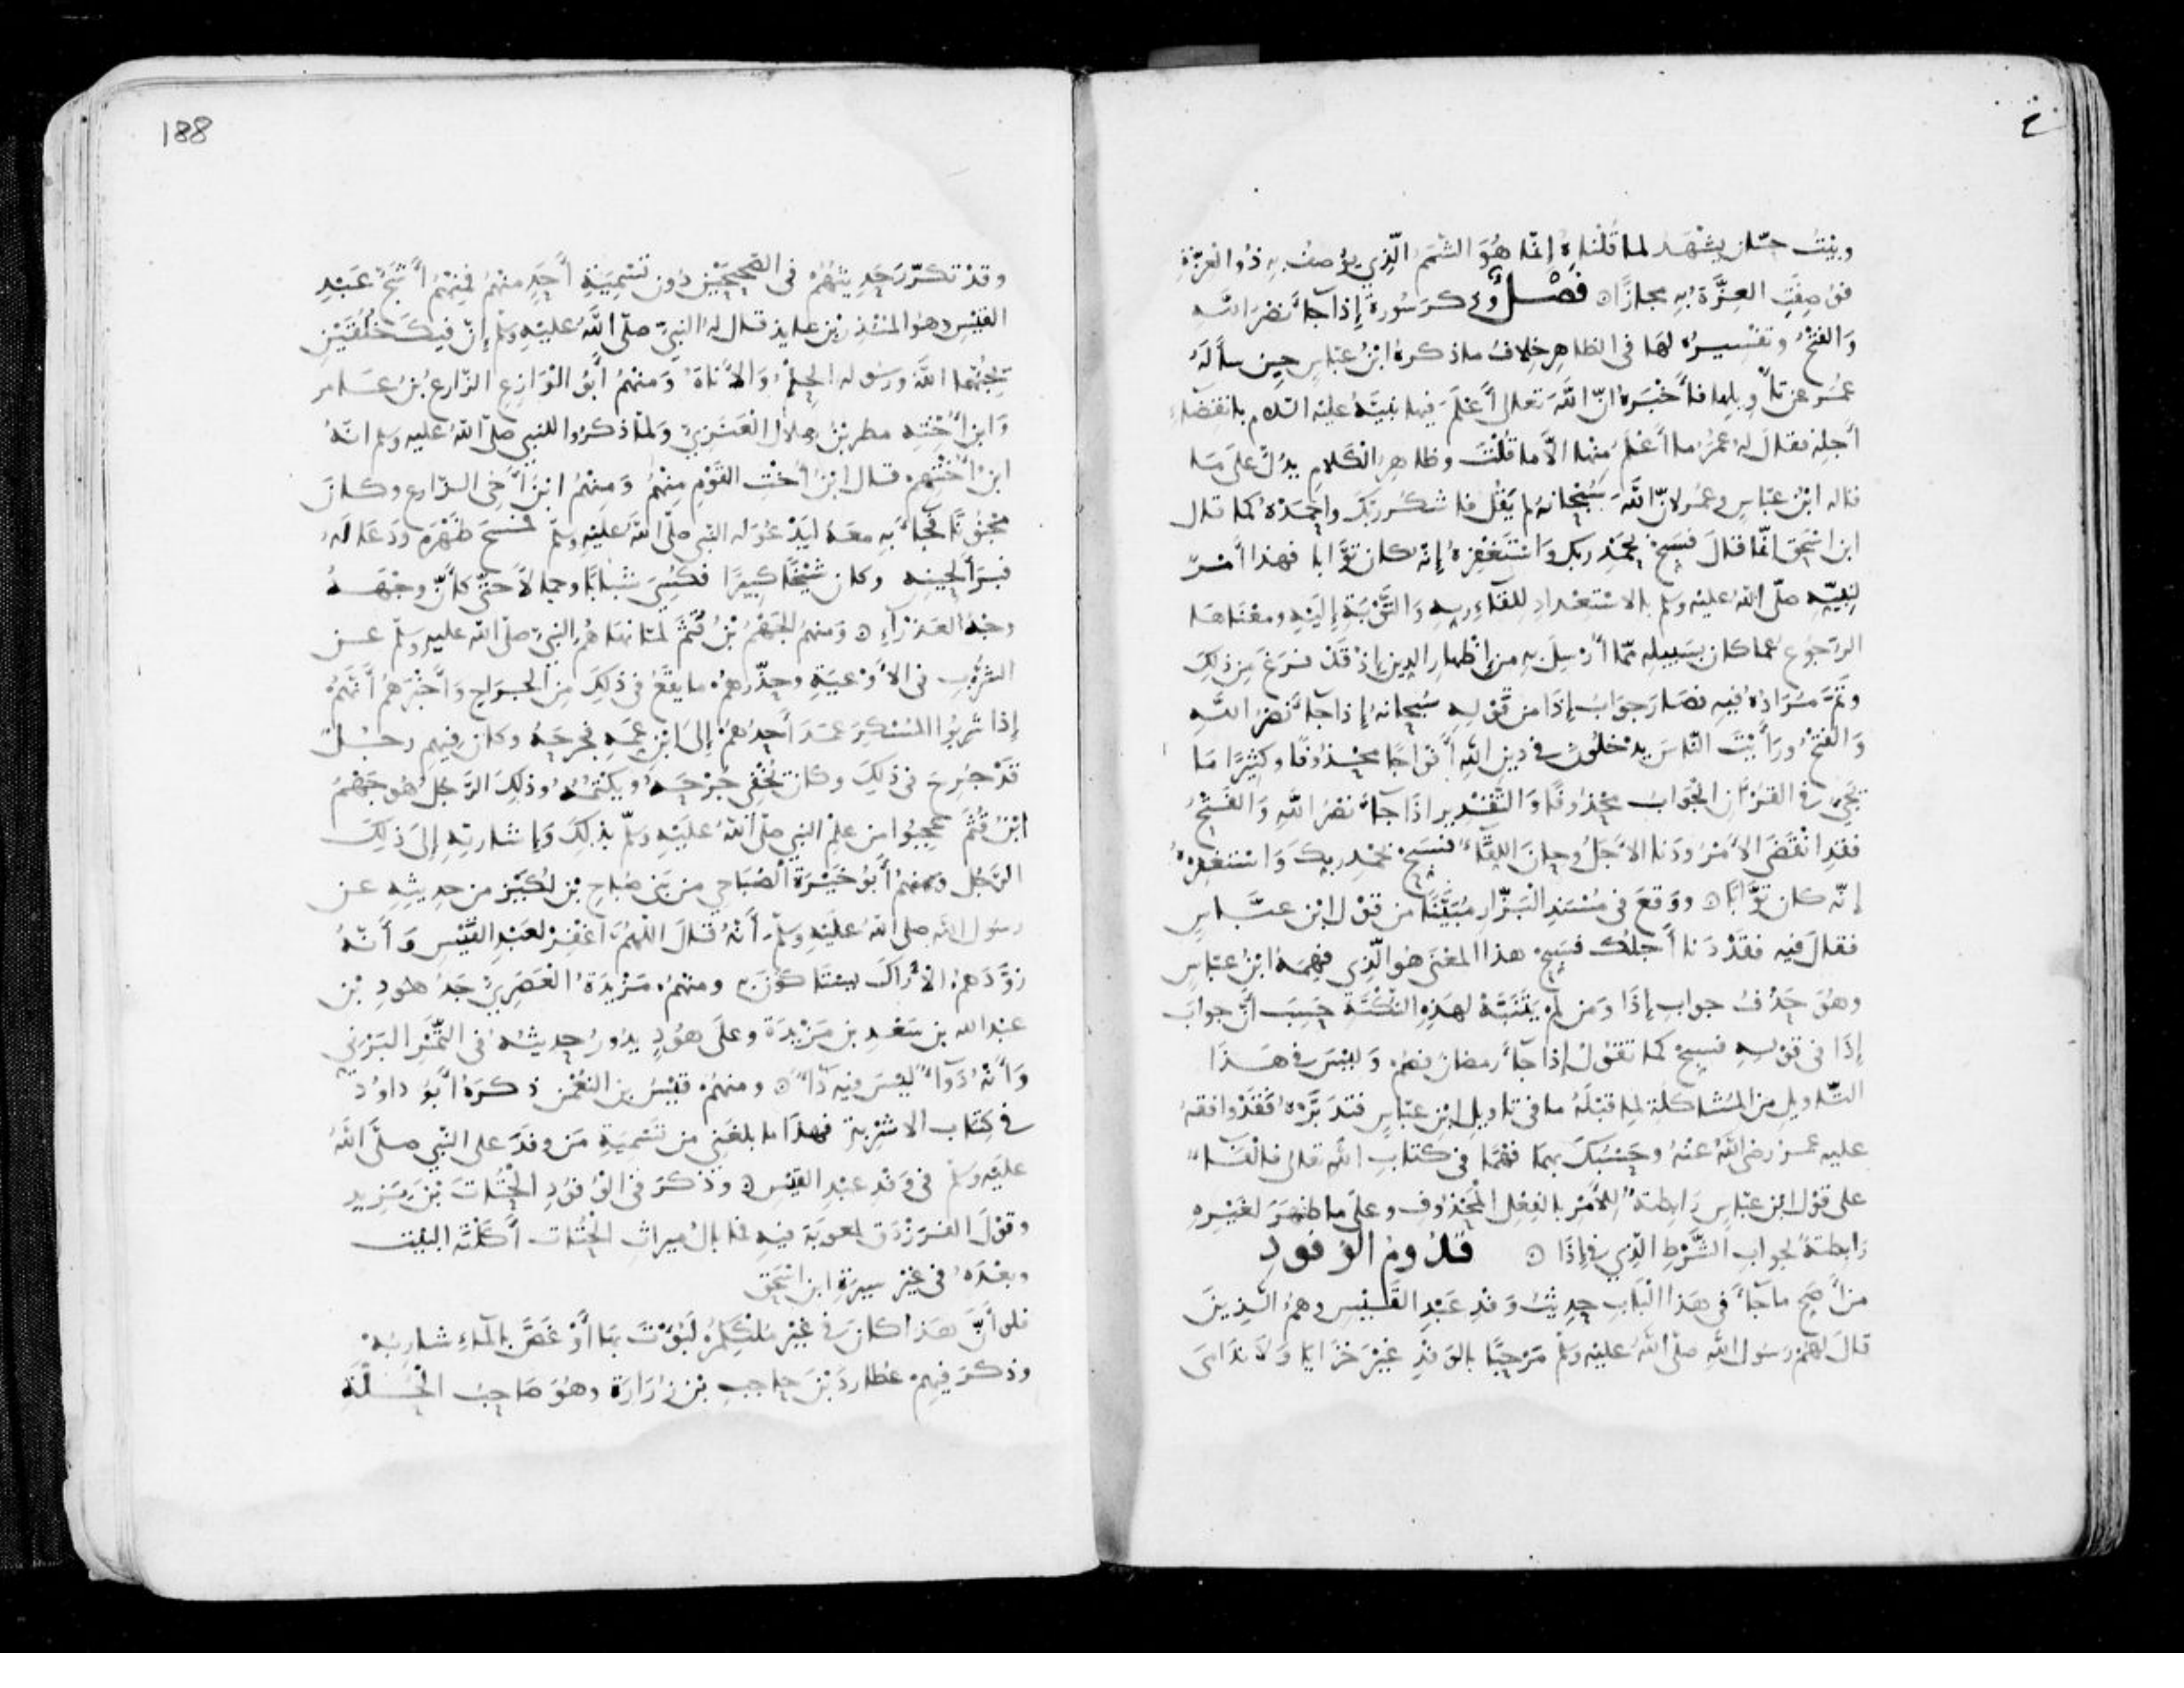 وبيت حسّان يشهد لما قلناه إنما هُوَ الشمم الّذي يوصف به ذُو العزّة
فوُصِفتِ العِزَّةُ بِهِ مجازًا فَصْلٌ وذكر سُورة إذا جآء نصر الله
وَالفتحُ وتفسيره لها في الظاهر خلافُ ما ذكره ابنُ عبّاسٍ حين سأله
عُمر عن تأويلها فأخبره أنّ الله تعالى أعلم فيها نبيّهُ عليه السلم بانقضآء
أجله فقال له عمرُ ما أعلم منها الّا ما قُلْتَ وظاهر الكلام يدُلّ على ما
قاله ابنُ عبّاس وعمر لانّ الله سبحانهُ لم يقل فاشكر ربّك واحمدهُ كما قال
ابن اسحق انّما قال فسبّح بحمد ربك واستغفرهُ إنّه كان توّابا فهذا أمرٌ
لنبيّه صلّى الله عليه وسلم بالاستعداد للقاءِ ربه والتّوبة إليه ومعناها
الرّجوع عما كان بسبيله ممّا أُرسل به من إظهار الدين إذ قد فرغ من ذلك
وتمّ مرادهُ فيه فصار جوابُ إذا من قوله سبحانهُ إذا جآء نصر الله
وَالفتحُ ورأيت النّاسَ يدخلون في دين الله أفواجًا محذوفًا وكثيرًا ما
يجيء في القرآن الجوابُ محذوفًا والتقدير اذا جآء نصرُ الله وَالفتحُ
فقد انقضى الأمرُ ودنا الأجلُ وحان اللقآء فسبّح بحمد ربك واستغفره
إنّه كان توّابًا ووقع في مسند البزّار مُبيّنا من قول ابن عبّاس
فقال فيه فقد دنا أجلك فسبّح هذا المعنى هو الّذي فهمهُ ابنُ عبّاس
وهو حذفُ جواب إذا ومن لم يتنبّه لهذه النكتة حسب أنّ جواب
إذا في قوله فسبّح كما تقولُ إذا جآء رمضان فصُم وليس في هذا
التّاويل من المُشاكلة لما قبله ما في تاويل ابن عبّاسٍ فتدبّره فقد وافقهُ
عليه عمر رضي الله عنهُ وحسبك بهما فهمًا في كتاب الله تعالى فالفآء
على قول ابن عبّاس رابطةٌ للأمر بالفعل المحذوفِ وعلى ما ظهر لغيره
رابطةٌ لجواب الشّرط الّذي في إذا قُدُومُ الوُفُودِ
من أصحّ ما جآء في هذا الباب حديثُ وفد عبد القيس وهمُ الّذينَ
قالَ لهم رسول الله صلّى الله عليه وسلّم مرحبًا بالوفد غير خزايا ولا ندامى
188
وقد تكرّر حديثهُم في الصحيحين دون تسمية أحدٍ منهم فمنهم أشجّ عبد
القيس وهو المنذر بن عايذ قال له النبيّ صلّى الله عليه وسلّم إنّ فيك خُلُقين
يحبّهما الله ورسوله الحِلمُ والأناةُ ومنهم أبو الوازع الزّارع بن عامر
وابن أخته مطر بن هلال العنزيّ ولمّا ذكروا للنبي صلّى الله عليه وسلم انّهُ
ابنُ أختهم قال ابنُ أخت القوم منهم ومنهم ابن أخي الزّارع وكان
مجنونًا فجاء به معهُ ليدعو له النبي صلّى الله عليه وسلّم فمسح ظهره ودعا له
فبرأ لحينه وكان شيخًا كبيرًا فكُسي شبابًا وجمالاً حتّى كأنّ وجههُ
وجهُ العذرآءِ ومنهمُ الجهمُ بنُ قُثم لمّا نهاهمُ النبيّ صلّى الله عليه وسلّم عن
الشّرب في الأوعية وحذّرهم ما يقعُ في ذلك من الجراح وأخبرهم أنّهم
إذا شربوا المُسكر عمد أحدهم إلى ابن عمّه فجرحهُ وكان فيهم رجلٌ
قد جُرح في ذلك وكان يُخفي جُرحهُ ويكتمُه وذلك الرّجل هو جهمُ
ابنُ قُثم عجبوا من علم النبي صلّى الله عليه وسلّم بذلك وإشارته إلى ذلك
الرّجل ومنهم أبو خيرة الصُباحي من بني صُباح بن لُكيز من حديثه عن
رسول الله صلى الله عليه وسلّم أنه قال اللهمّ اغفر لعبد القيس وأنّه
زوّدهم الأراك يستاكون به ومنهم مزيدةُ العصريّ جدّ هود بن
عبد الله بن سعد بن مزيدة وعلى هودٍ يدورُ حديثه في التّمر البرني
وأنّهُ دوآءٌ ليس فيه دآءٌ ومنهم قيس بن النعمن ذكره أبو داود
في كتاب الاشربة فهذا ما بلغني من تسمية من وفد على النّبي صلّى الله
عليه وسلّم في وفد عبد القيس وذكر في الوُفودِ الحُتات بن يزيد
وقول الفرزدق لمعوية فيه فما بالُ ميراث الحُتات أكلته البيت
وبعدهُ في غير سيرة ابن اسحق
فلو أنّ هذا كان في غير مُلككم لبُؤت بها أو غصّ بالمآءِ شاربُه
وذكر فيهم عطارد بن حاجب بن زُرارة وهو صاحبُ الحُلّة